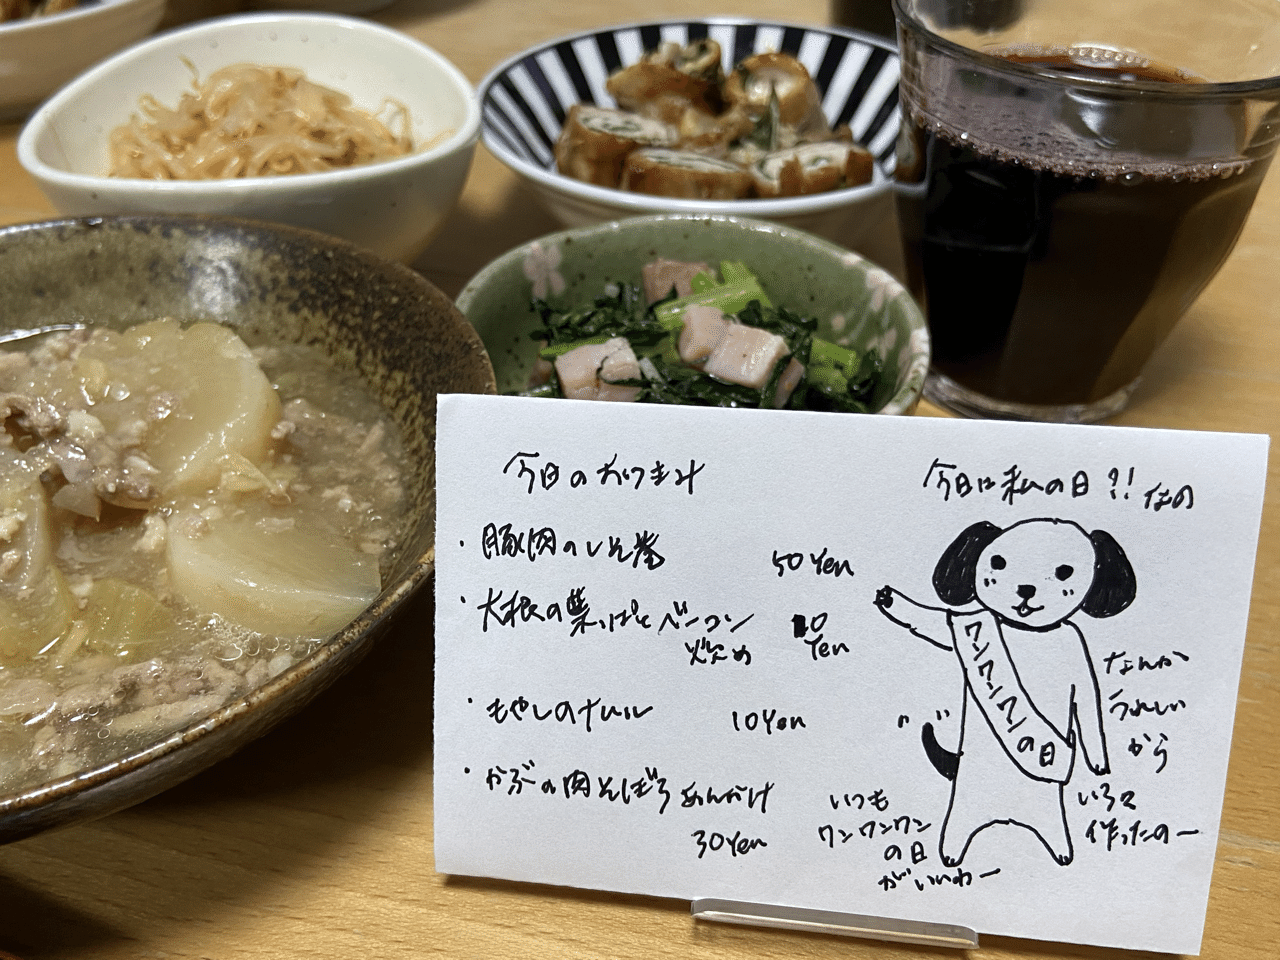 今日のおつまみ
・豚肉のしそ巻 50Yen
・大根の葉っぱとベーコン
炒め 10Yen
・もやしのナムル 10Yen
・かぶの肉そぼろあんかけ
30Yen
今日は私の日?!なの
ワンワンワンの日
なんか
うれしい
から
いろいろ
作ったのー
いつも
ワンワンワン
の日
がいいわー